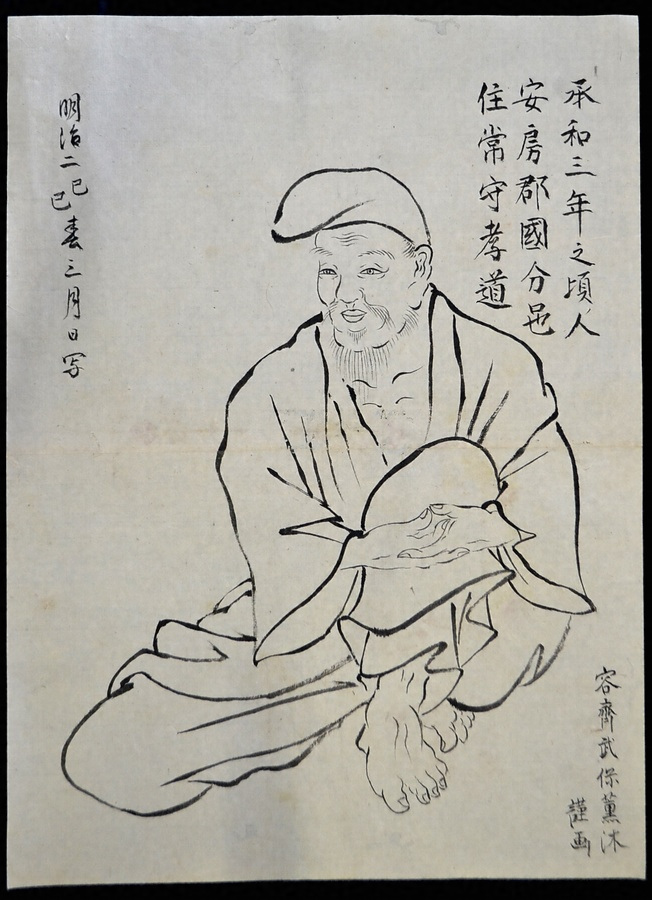 承和三年之頃人
安房郡國分邑
住常守孝道
容齊武保薫沐
謹画
明治二己巳春三月日写